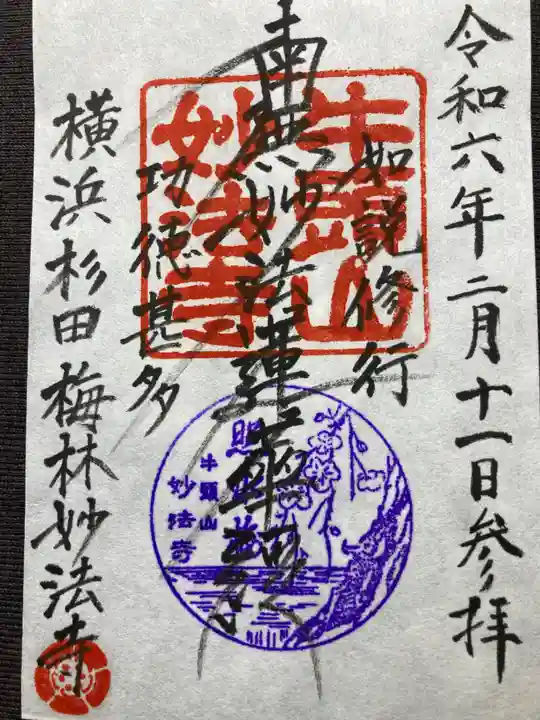 令和六年二月十一日参拝
如説修行
南無妙法蓮華経
功徳甚多
横浜杉田梅林妙法寺
牛頭山
妙法寺
照水梅
牛頭山
妙法寺